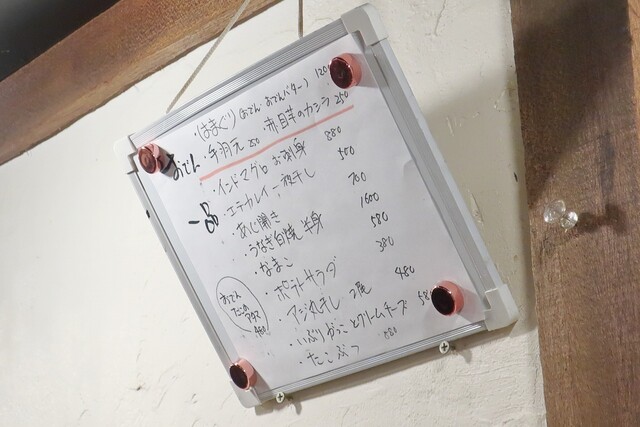 ・はまぐり(おでん・おでんバター) 1200
おでん ・手羽元 250 ・赤目芋のカシラ 250
・インドマグロお刺身 880
一品 ・エテカレイ一夜干し 500
・あじ開き 700
・うなぎ白焼 半身 1600
・なまこ 580
・ポテトサラダ 380
・アジ丸干し 2尾 480
・いぶりがっことクリームチーズ 580
・たこぶつ 880
おでん
たこの
480